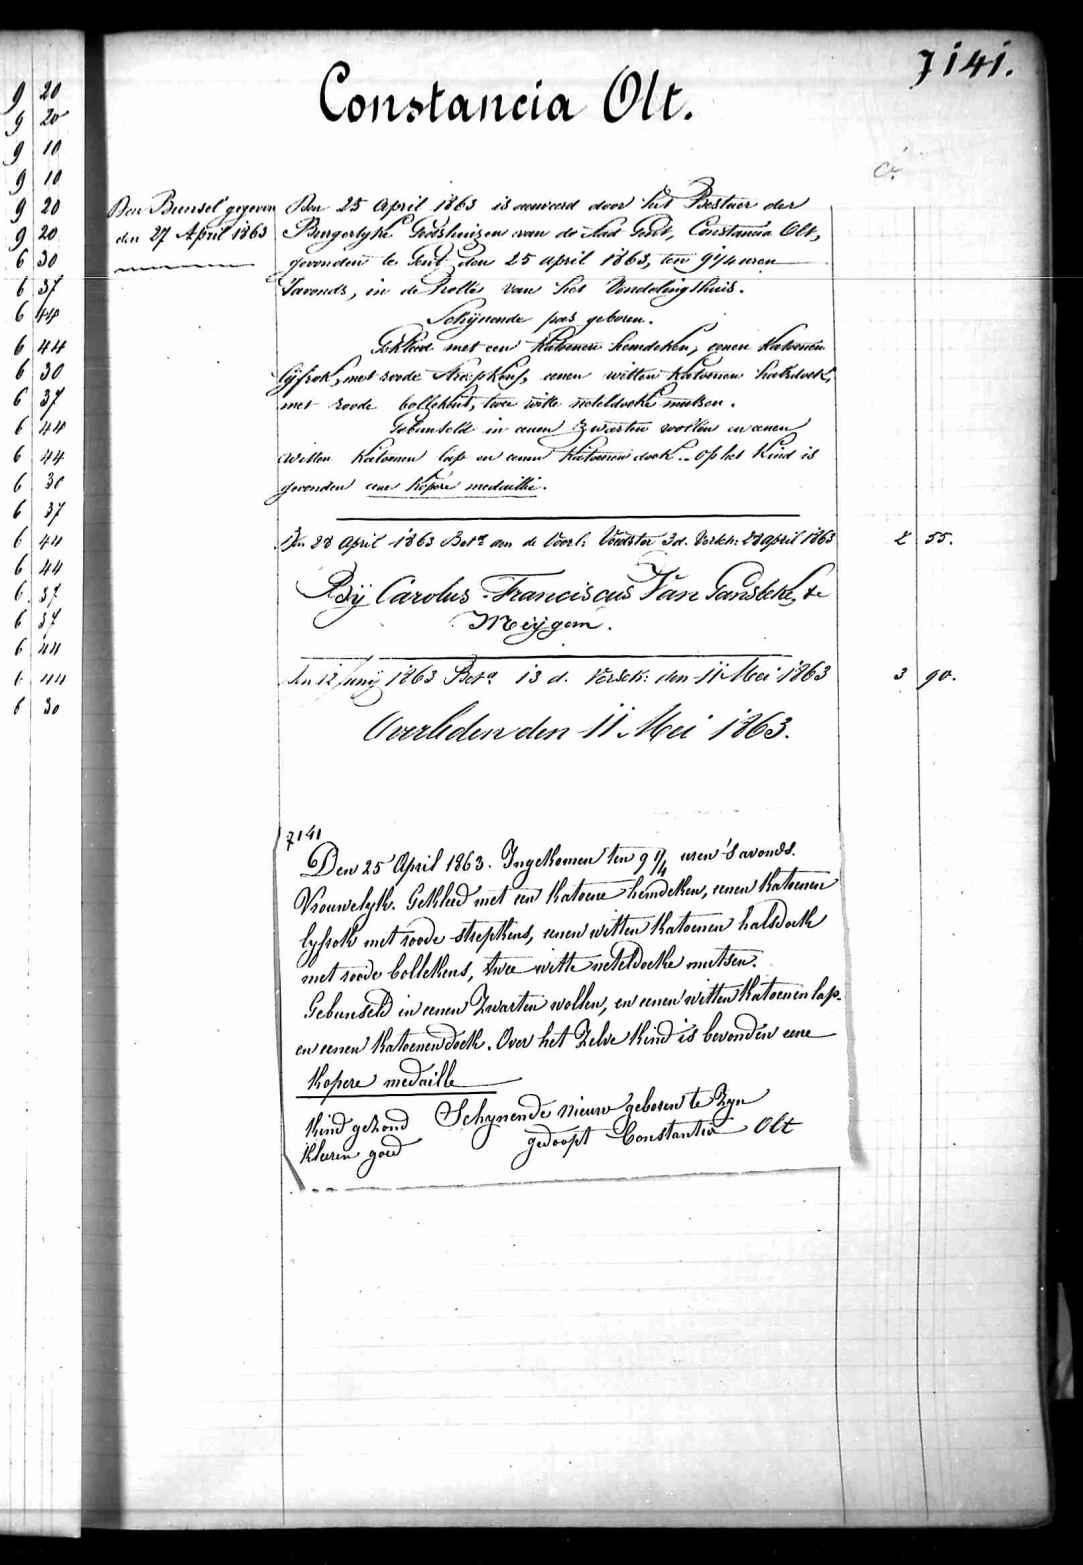 7141.
Constancia Olt.
Den Bunsel gegeven
den 27 April 1863
Den 25 April 1863 is aenveerd door het Bestuer der
Burgerlyke Godshuizen van de stad Gent, Constancia Olt,
gevonden te Gent den 25 april 1863, ten 9 1/4 uren
'savonds, in de Rolle van het Vondelingshuis.
Schijnende pas geboren.
Gekleed met een katoenen hemdeken, eenen katoenen
lijfrok, met roode streepkens, eenen witten katoenen halsdoek,
met roode bollekens, twee witte neteldoeke mutsen.
Gebunseld in eenen zwarten wollen en eenen
witten katoenen lap en eenen katoenen doek. - Op het kind is
gevonden eene kopere medaillie.
Den 28 April 1863 Bet. aen de Voorl. Voedster 3 d. Versch: 28 april 1863
2 55.
Bij Carolus Franciscus Van Gansbeke, te
Meijgem.
den 12 Junij 1863 Bet. 13 d. Versch: den 11 Mei 1863
3 90.
Overleden den 11 Mei 1863.
7141
Den 25 April 1863. Ingekomen ten 9 1/4 uren 's avonds.
Vrouwelyk. Gekleed met een katoene hemdeken, eenen katoenen
lyfrok met roode streepkens, eenen witten katoenen halsdoek
met roode bollekens, twee witte neteldoeke mutsen.
Gebunseld in eenen zwarten wollen, en eenen witten katoenen lap.
en eenen katoenen doek. Over het zelve kind is bevonden eene
kopere medaille
kind gezond Schynende nieuw geboren te zyn
kleeren goed gedoopt Constantia Olt
9 20
9 20
9 10
9 10
9 20
9 20
6 30
6 37
6 44
6 44
6 30
6 37
6 44
6 44
6 30
6 37
6 44
6 44
6 37
6 37
6 44
6 44
6 30